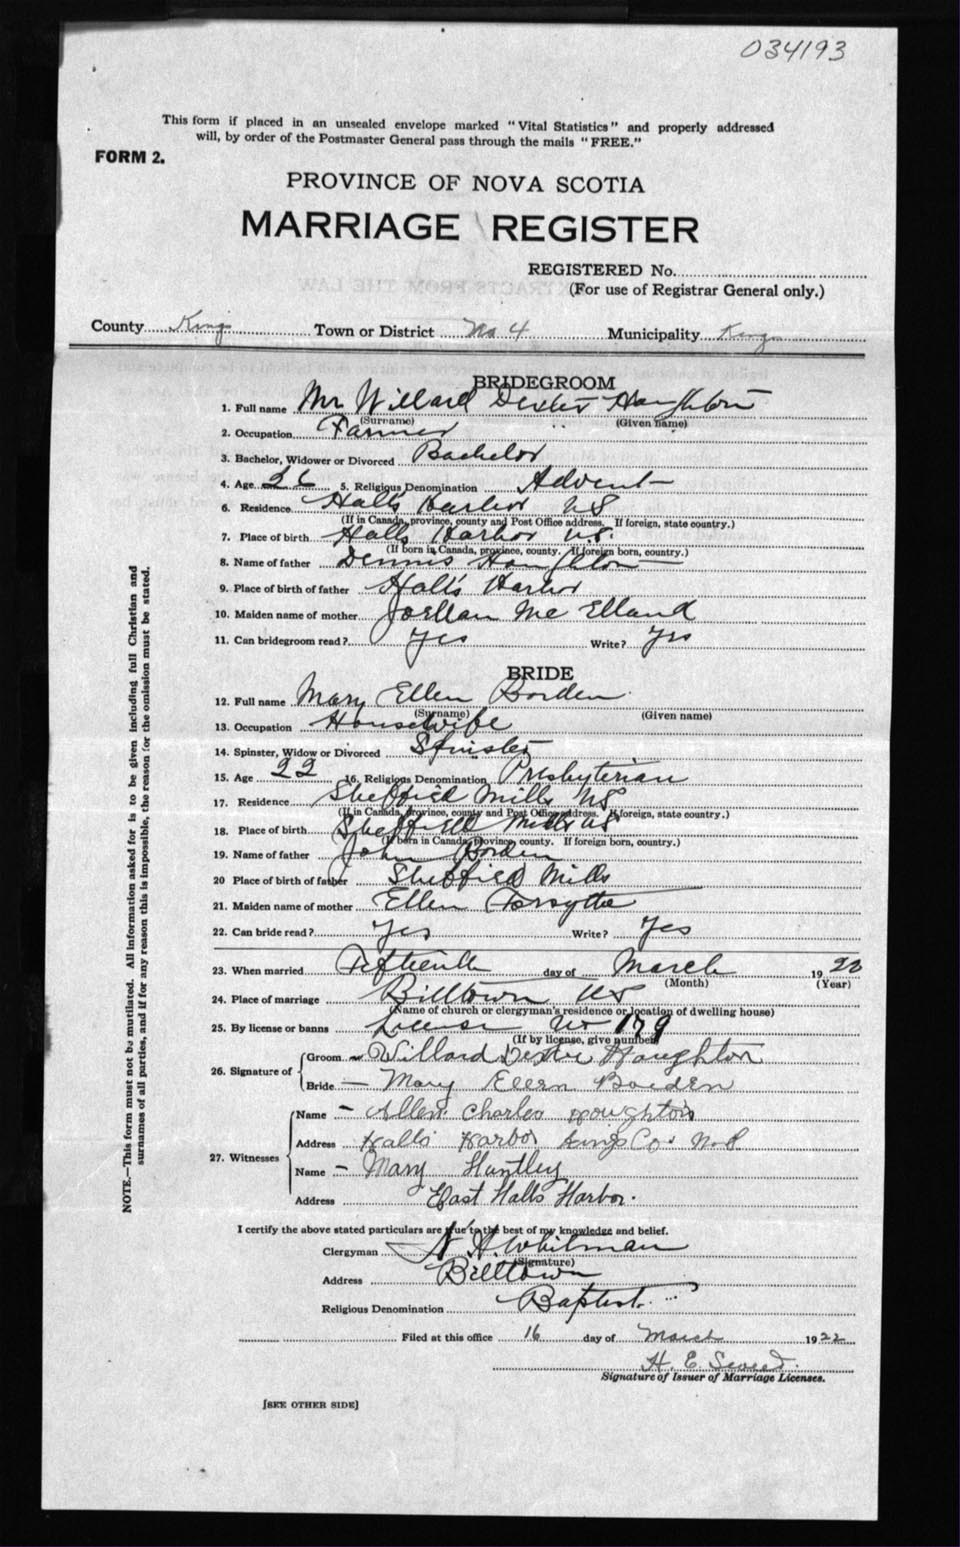 034193
This form if placed in an unsealed envelope marked "Vital Statistics" and properly addressed
will, by order of the Postmaster General pass through the mails "FREE."
FORM 2.
PROVINCE OF NOVA SCOTIA
MARRIAGE REGISTER
REGISTERED No.
(For use of Registrar General only.)
County Kings Town or District No 4 Municipality Kings
BRIDEGROOM
1. Full name Mr Willard Dexter Haughton
(Surname) (Given name)
2. Occupation Farmer
3. Bachelor, Widower or Divorced Bachelor
4. Age 26 5. Religious Denomination Advent
6. Residence Halls Harbor NS
(If in Canada, province, county and Post Office address. If foreign, state country.)
7. Place of birth Halls Harbor NS.
(If born in Canada, province, county. If foreign born, country.)
8. Name of father Dennis Haughton
9. Place of birth of father Halls Harbor
10. Maiden name of mother Mc Elland
11. Can bridegroom read? Yes Write? Yes
BRIDE
12. Full name Mary Ellen Borden
(Surname) (Given name)
13. Occupation Housewife
14. Spinster, Widow or Divorced Spinster
15. Age 22 16. Religious Denomination Presbyterian
17. Residence Sheffield Mills NS
(If in Canada, province, county and Post Office address. If foreign, state country.)
18. Place of birth Sheffield Mills NS
(If born in Canada, province, county. If foreign born, country.)
19. Name of father John Borden
20 Place of birth of father Sheffield Mills
21. Maiden name of mother Ellen Forsythe
22. Can bride read? Yes Write? Yes
23. When married Fifteenth day of March 1922
(Month) (Year)
24. Place of marriage Billtown NS
(Name of church or clergyman's residence or location of dwelling house)
25. By license or banns License No 179
(If by license, give number)
26. Signature of Groom Willard Dexter Haughton
Bride Mary Ellen Borden
27. Witnesses Name Allen Charles Houghton
Address Halls Harbor Kings Co. N.S
Name Mary Huntley
Address East Halls Harbor.
NOTE.—This form must not be mutilated. All information asked for is to be given including full Christian and
surnames of all parties, and if for any reason this is impossible, the reason for the omission must be stated.
I certify the above stated particulars are true to the best of my knowledge and belief.
Clergyman A. Whitman
(Signature)
Address Billtown
Religious Denomination Baptist.
Filed at this office 16 day of March 1922
H. E.
Signature of Issuer of Marriage Licenses.
[SEE OTHER SIDE]